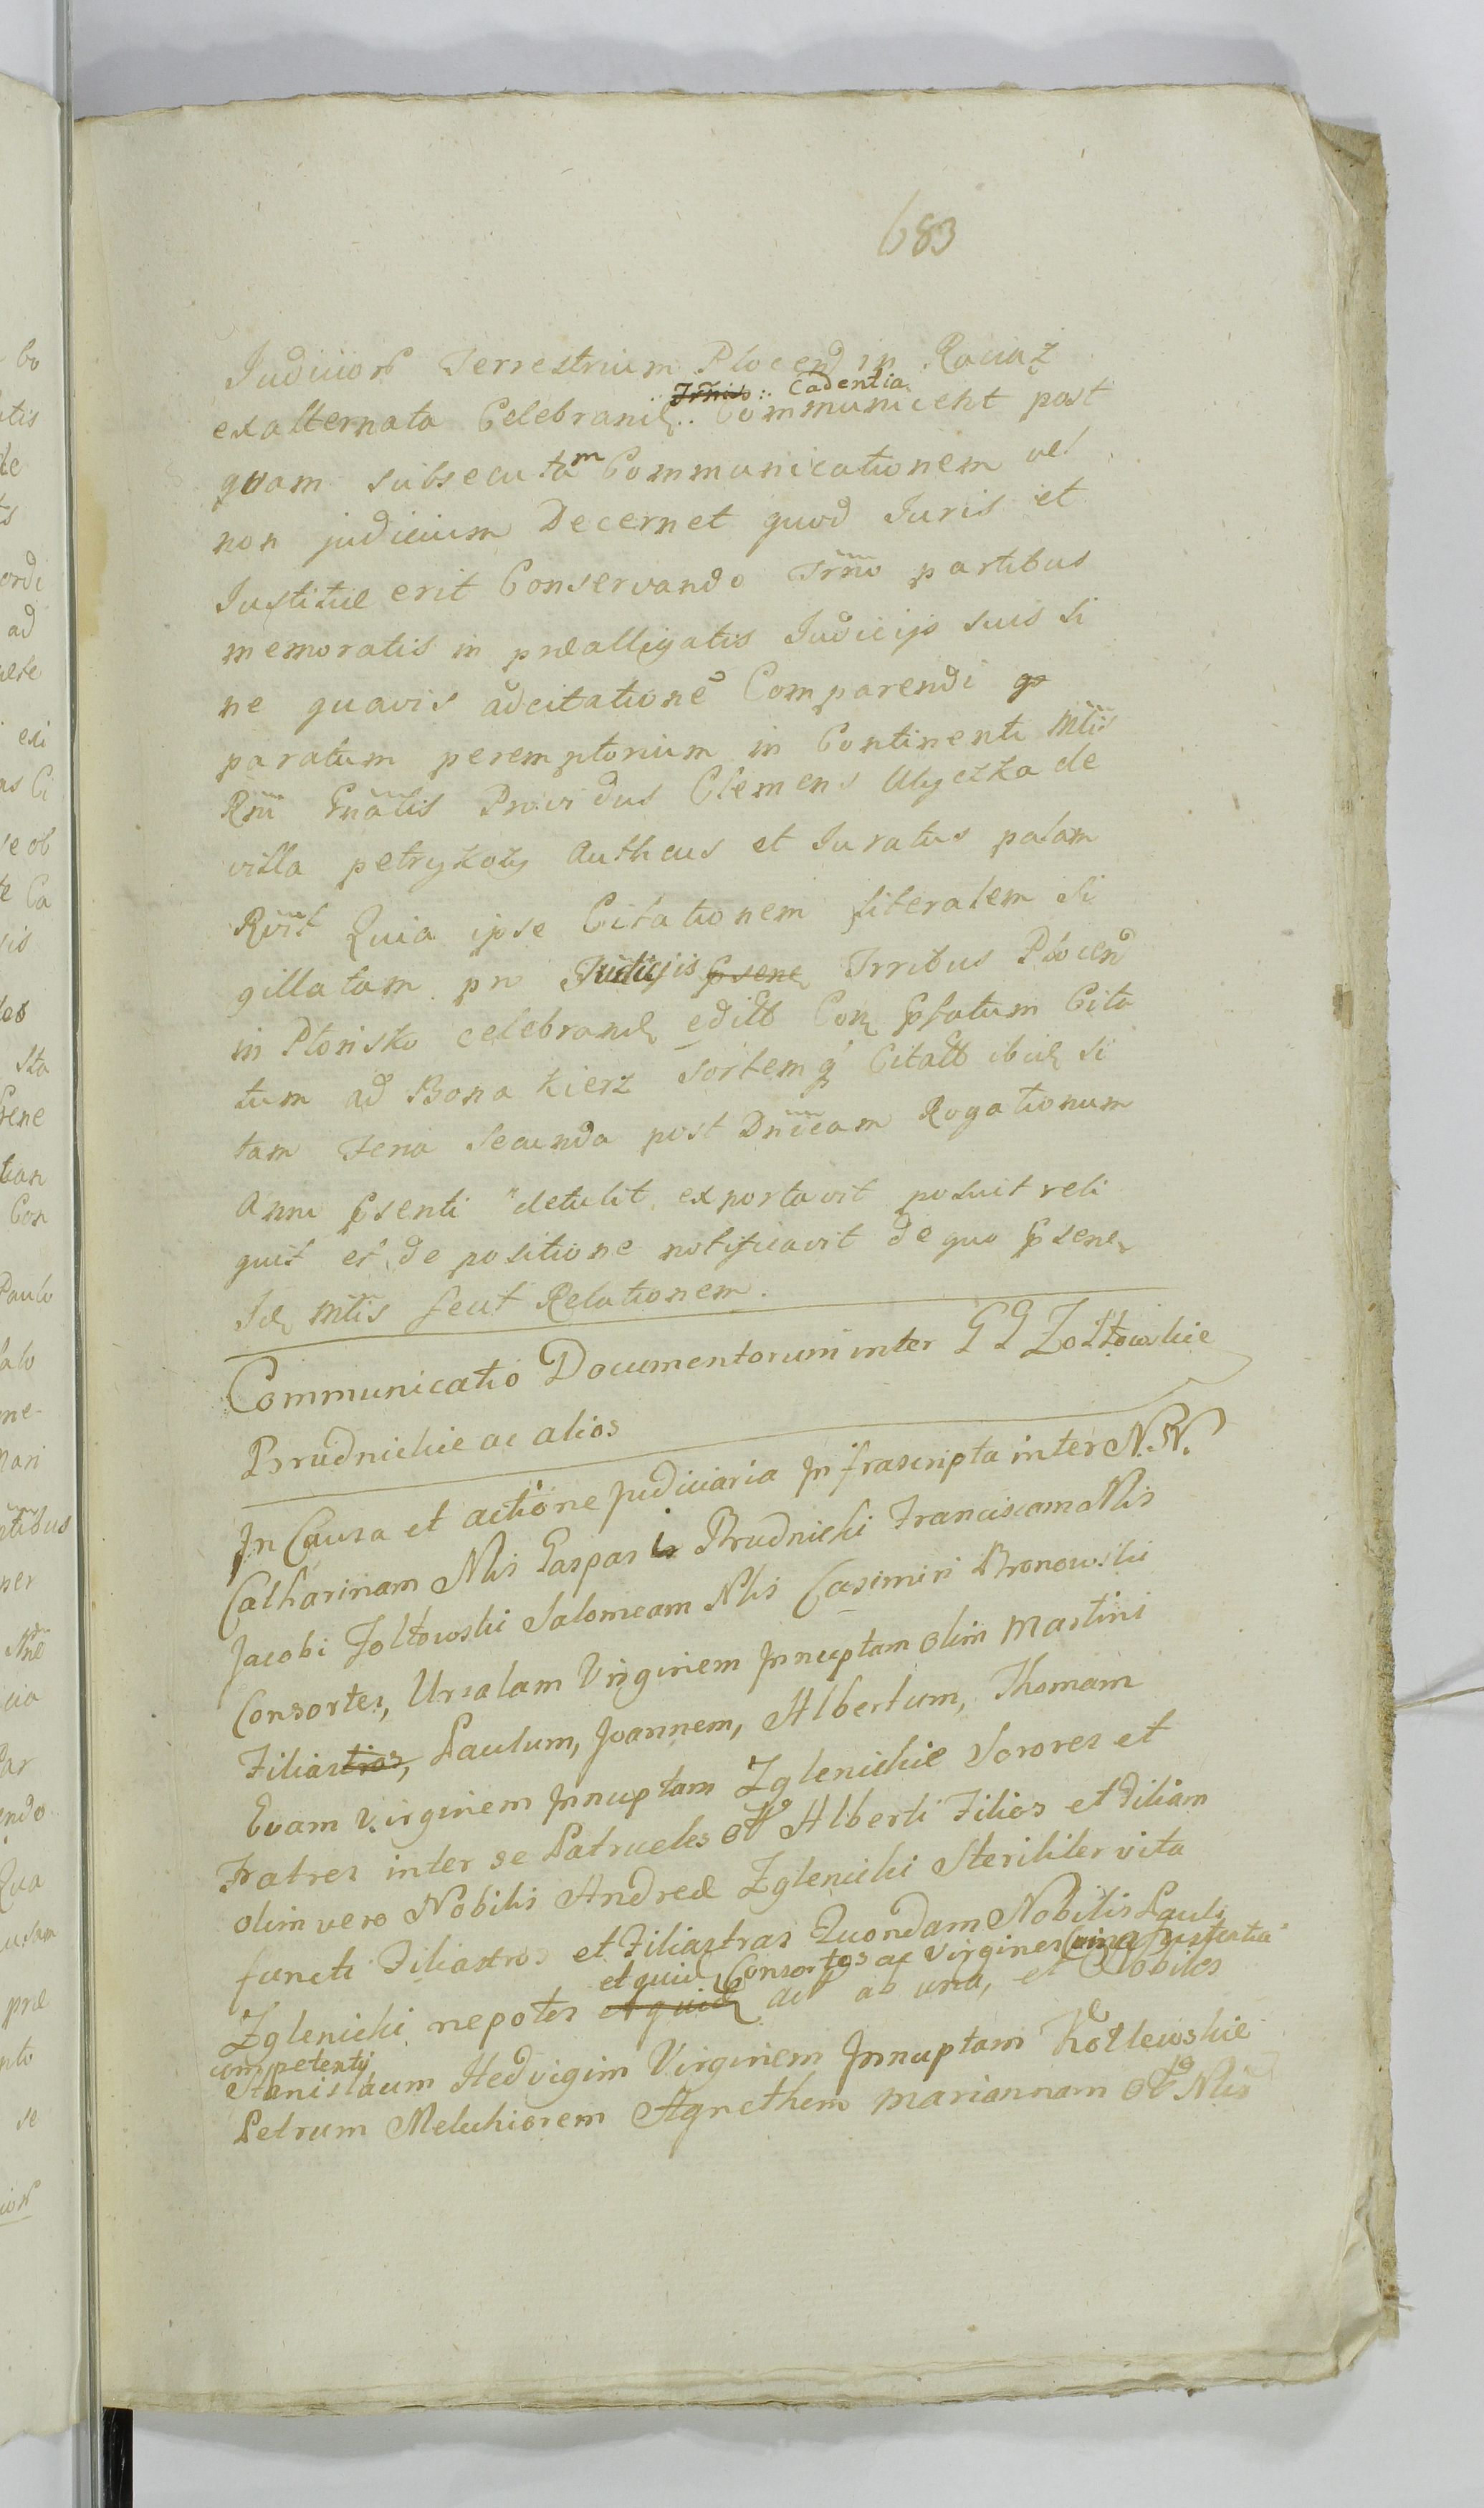 683
Judicior Terrestrium Plocen in Raciąż
Trnis Cadentia
exalternata Celebrand Communicent post
quam subsecutam Communicationem vel
non judicium Decernet quod Juris et
Justitiæ erit Conservando Trno partibus
memoratis in præalligatis Judicijs suis si
ne quavis adcitatione Comparendi
paratum peremptorium in Continenti Mtis
Rni Gnalis Providus Clemens Wyczka de
villa petrykozy Authcus et Juratus palam
Rvit Quia ipse Citationem literalem Si
gillatam pro Judicijs Psene Trribus Plocen
in Płońsko celebrand edit Con Psatum Cita
tum ad Bona Kierz sortemq Citatt ibid si
tam Feria Secunda post Dnicam Rogationum
Anni Psenti detulit exportavit posuit reli
quit et de positione notificavit de quo Psene
Id Mtis fecit Relationem.
Communicatio Documentorum inter G G Zołtowskie
Brudnickie ac alios
In Causa et actione judiciaria Infrascripta inter N. N.
Catharinam Nlis Gasparis Brudnicki Franciscam Nlis
Jacobi Zołtowski Salomeam Nlis Casimiri Bronowski
Consortes, Ursulam Virginem Innuptam olim Martini
Filiastras, Paulum, Joannem, Albertum, Thomam
Evam Virginem Innuptam Zglenickie Sorores et
Fratres inter se Patrueles Alberti Filios et Filiam
olim vero Nobilis Andreæ Zglenicki Steriliter vita
functi Filiastros et Filiastras Quondam Nobilis Pauli
et quid Consortes ac Virgines Cum assistentia
Zglenicki nepotes et quid act ab una, et Nobiles
competenty
Stanislaum Hedvigim Virginem Innuptam Kotlewskie
Petrum Melchiorem Agnethem Mariannam Nlis